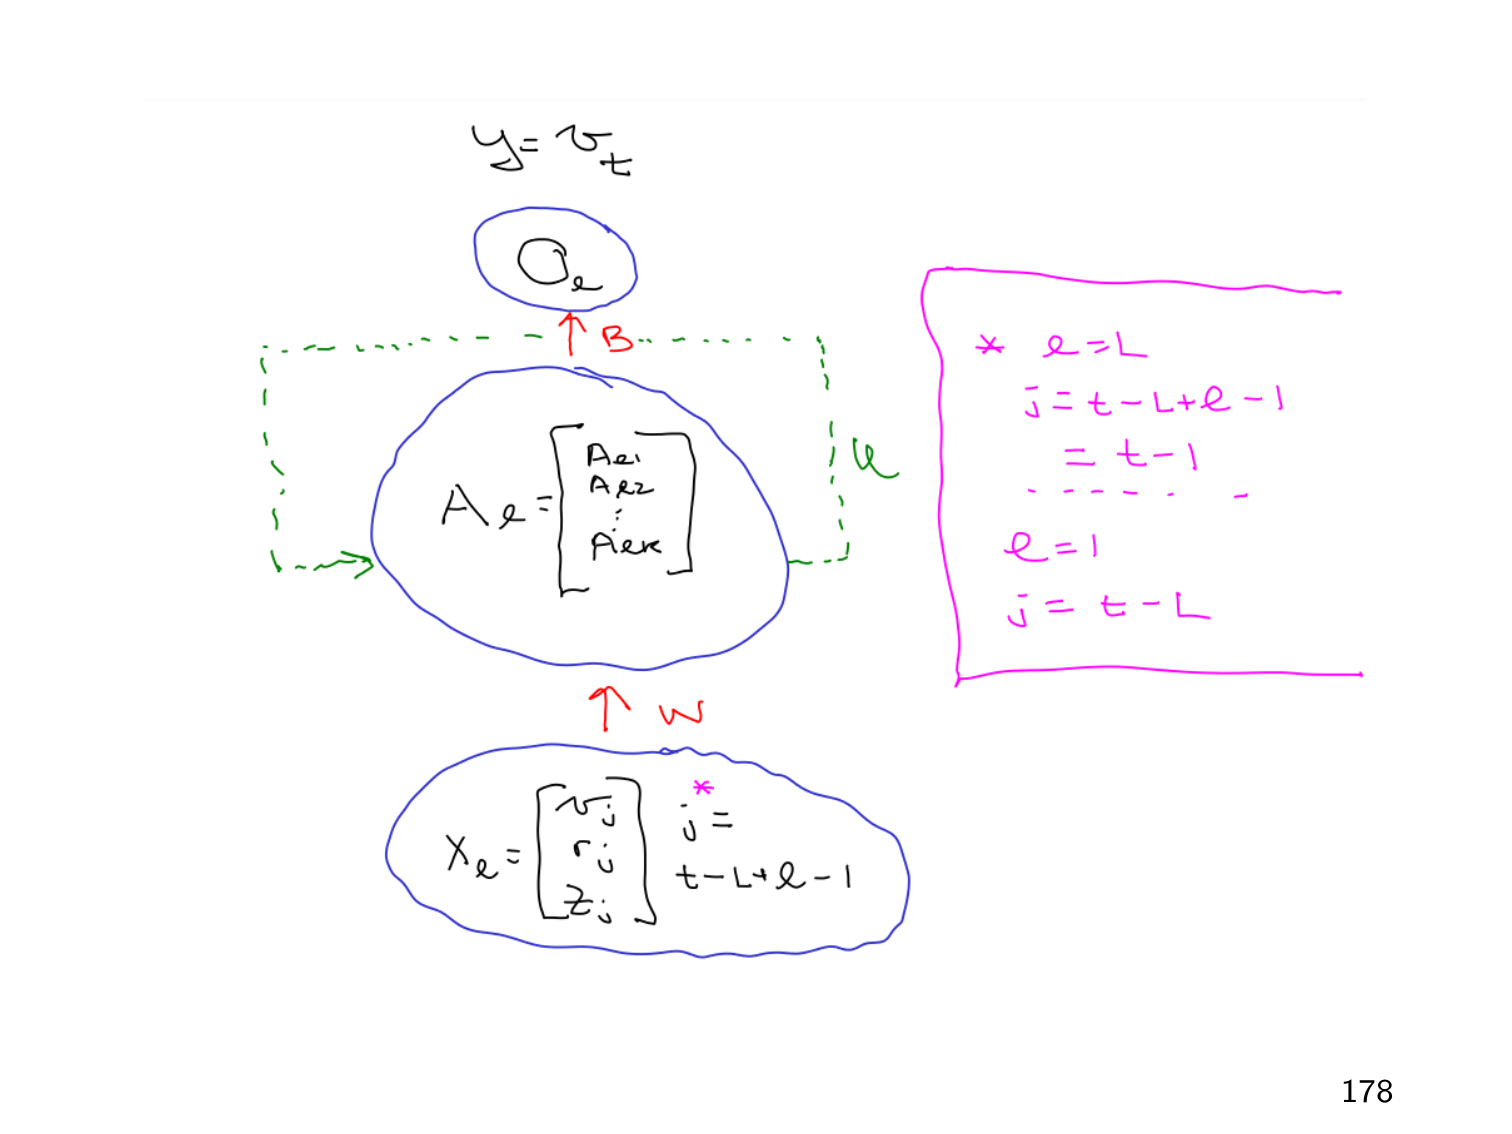 y = v_t
O_ℓ
B
A_ℓ = [A_ℓ1 A_ℓ2 ⋮ A_ℓK]
U
W
X_ℓ = [v_j r_j z_j]
*
j =
t - L + ℓ - 1
* ℓ = L
j = t - L + ℓ - 1
= t - 1
ℓ = 1
j = t - L
178